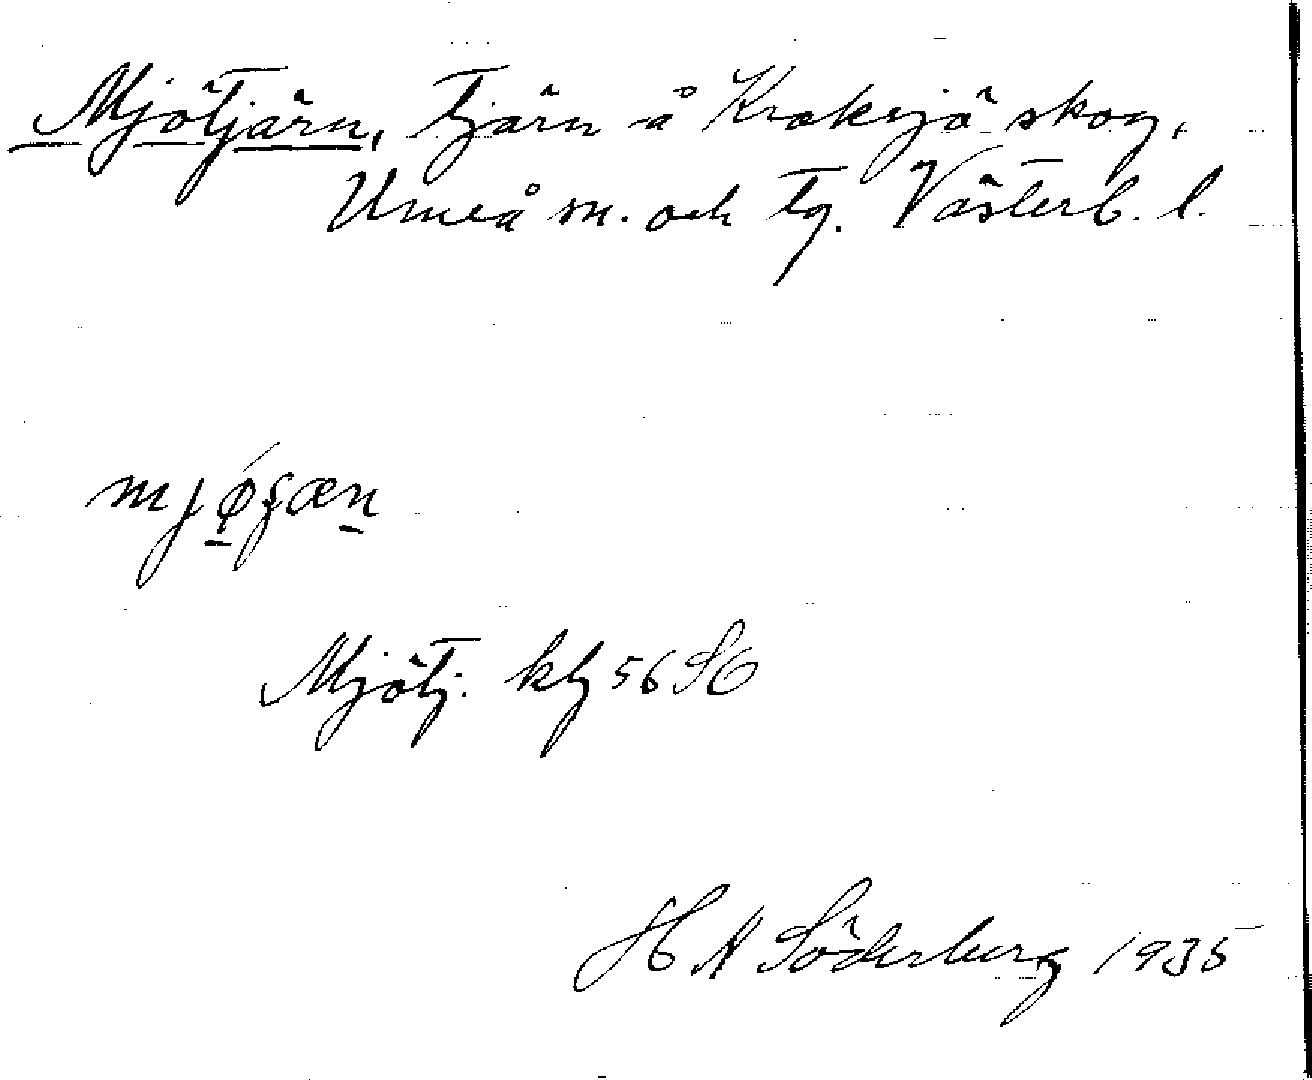 Mjötjärn, tjärn å Kroksjö skog,
Umeå m. och tg. Västerb. l.
Mjötj. kbl 56 SO
H A Söderberg 1935